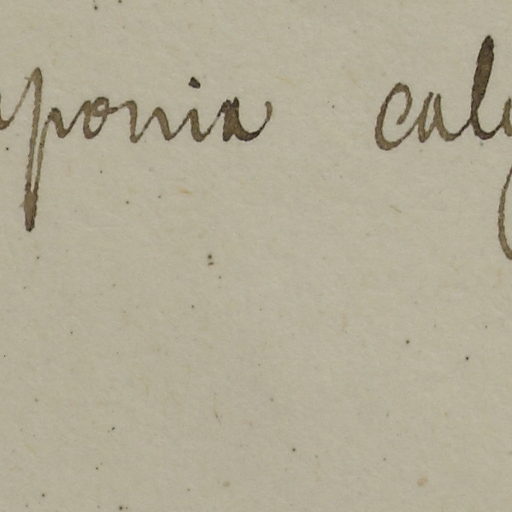 aponia caly